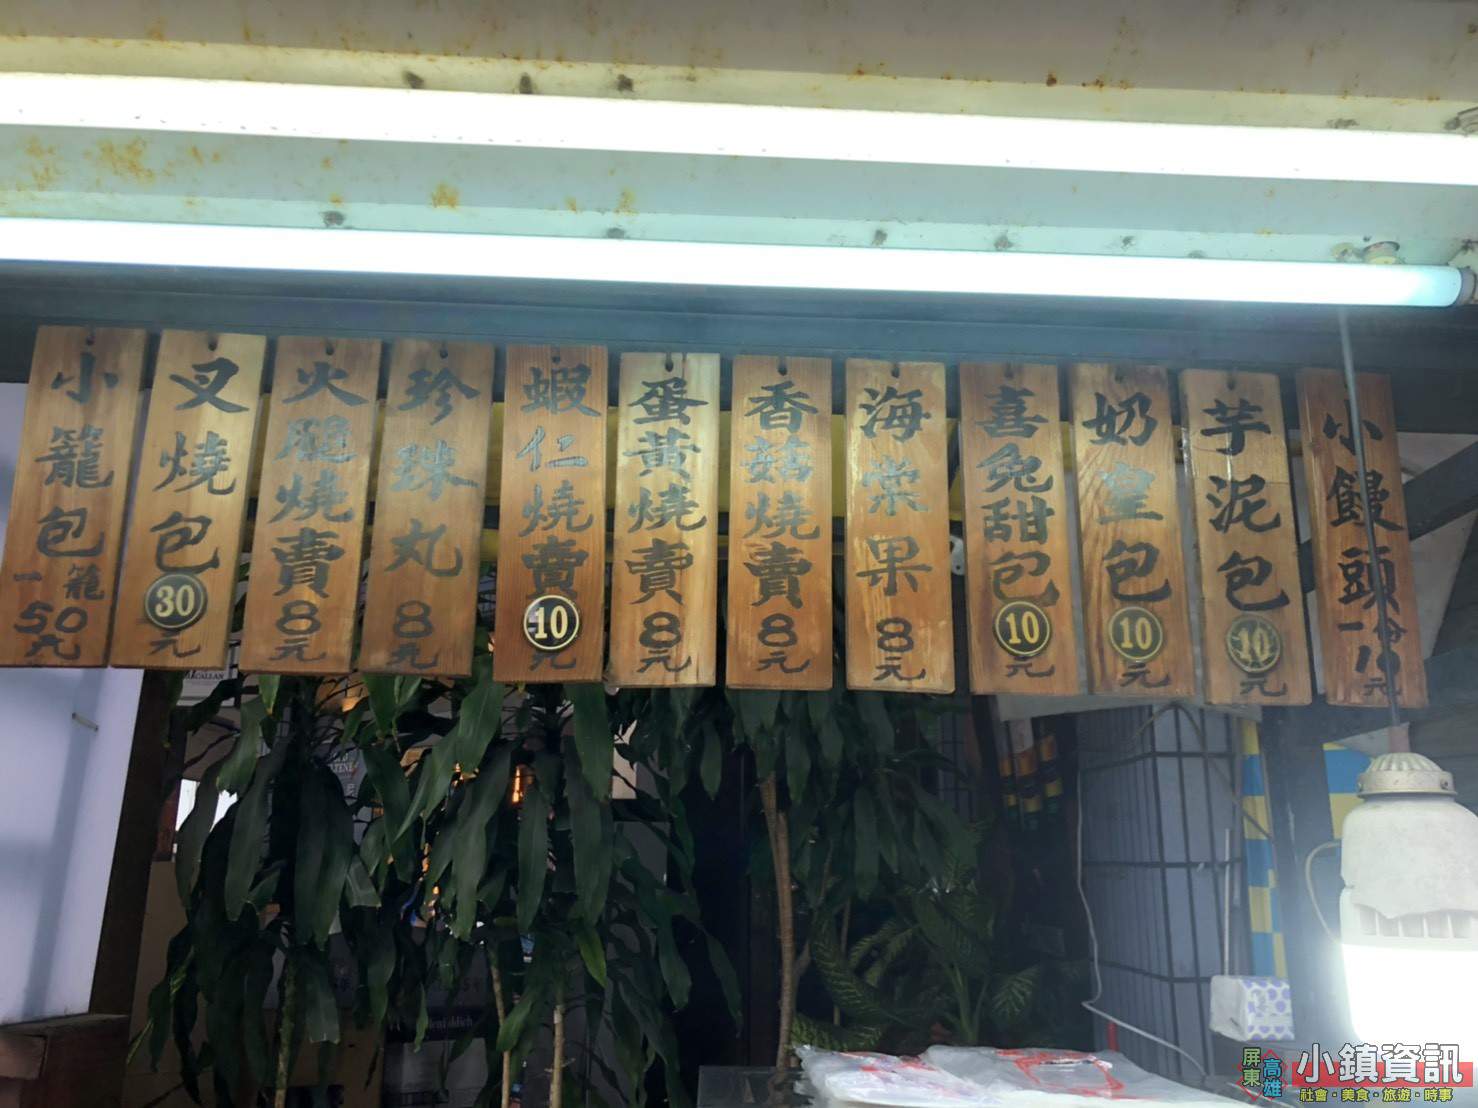 小籠包一籠50元
叉燒包30元
火腿燒賣8元
珍珠丸8元
蝦仁燒賣10元
蛋黃燒賣8元
香菇燒賣8元
海棠果8元
喜兔甜包10元
奶皇包10元
芋泥包10元
小饅頭一份10元
屏東
高雄
小鎮資訊
社會·美食·旅遊·時事